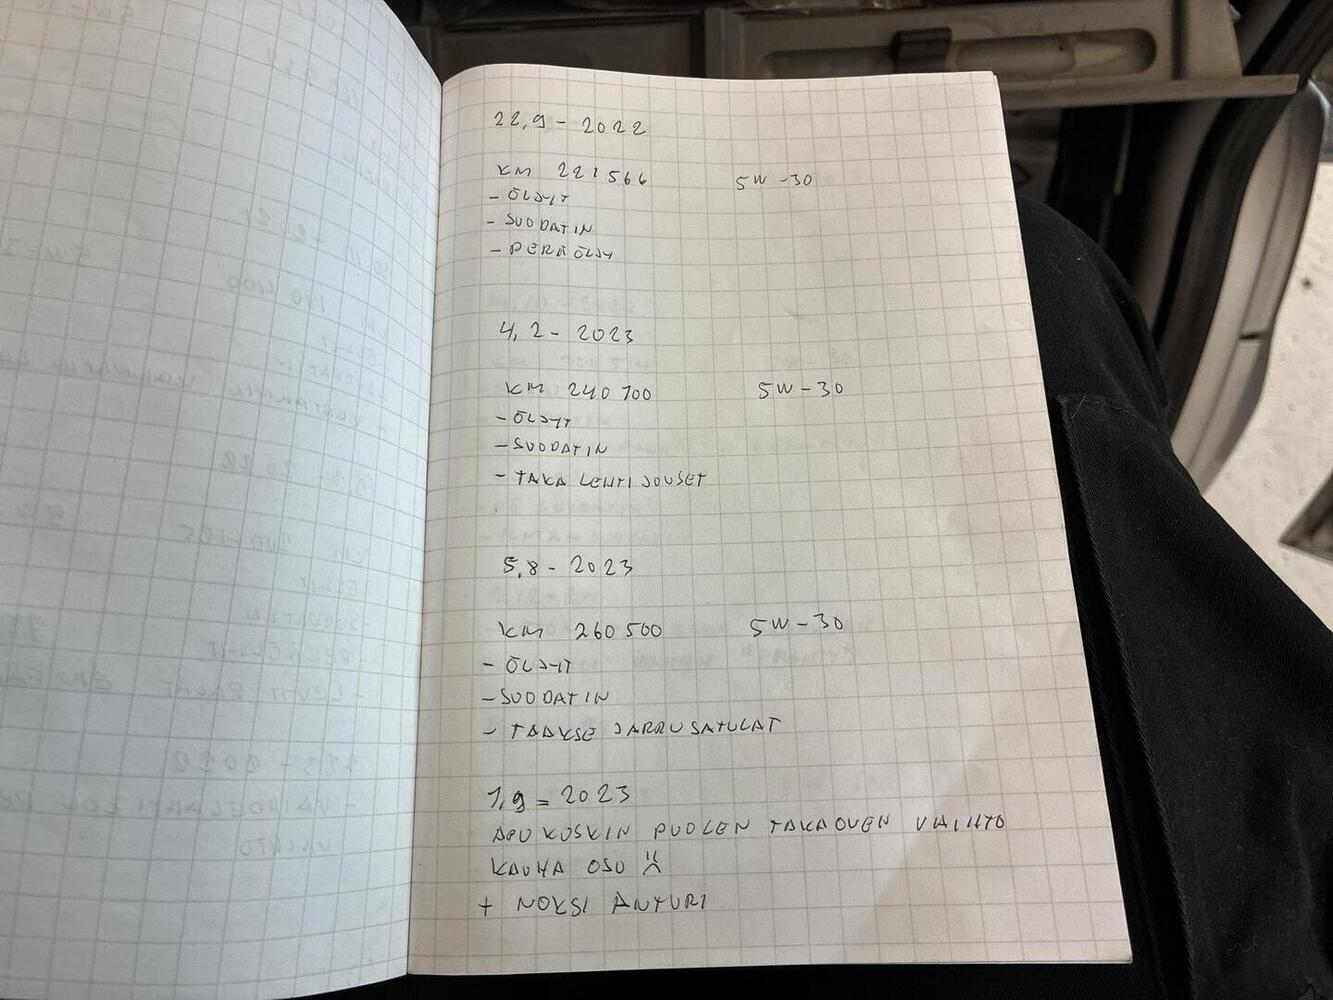 22,9 - 2022
KM 221566 5W-30
- ÖLJYT
- SUODATIN
- PERÄÖLJY
4,2 - 2023
KM 240700 5W-30
- ÖLJYT
- SUODATIN
- TAKA LEHTIJOUSET
5,8 - 2023
KM 260500 5W-30
- ÖLJYT
- SUODATIN
- TAAKSE JARRUSATULAT
1,9 = 2023
APUKUSKIN PUOLEN TAKAOVEN VAIHTO
KAUHA OSU
+ NOKSI ANTURI